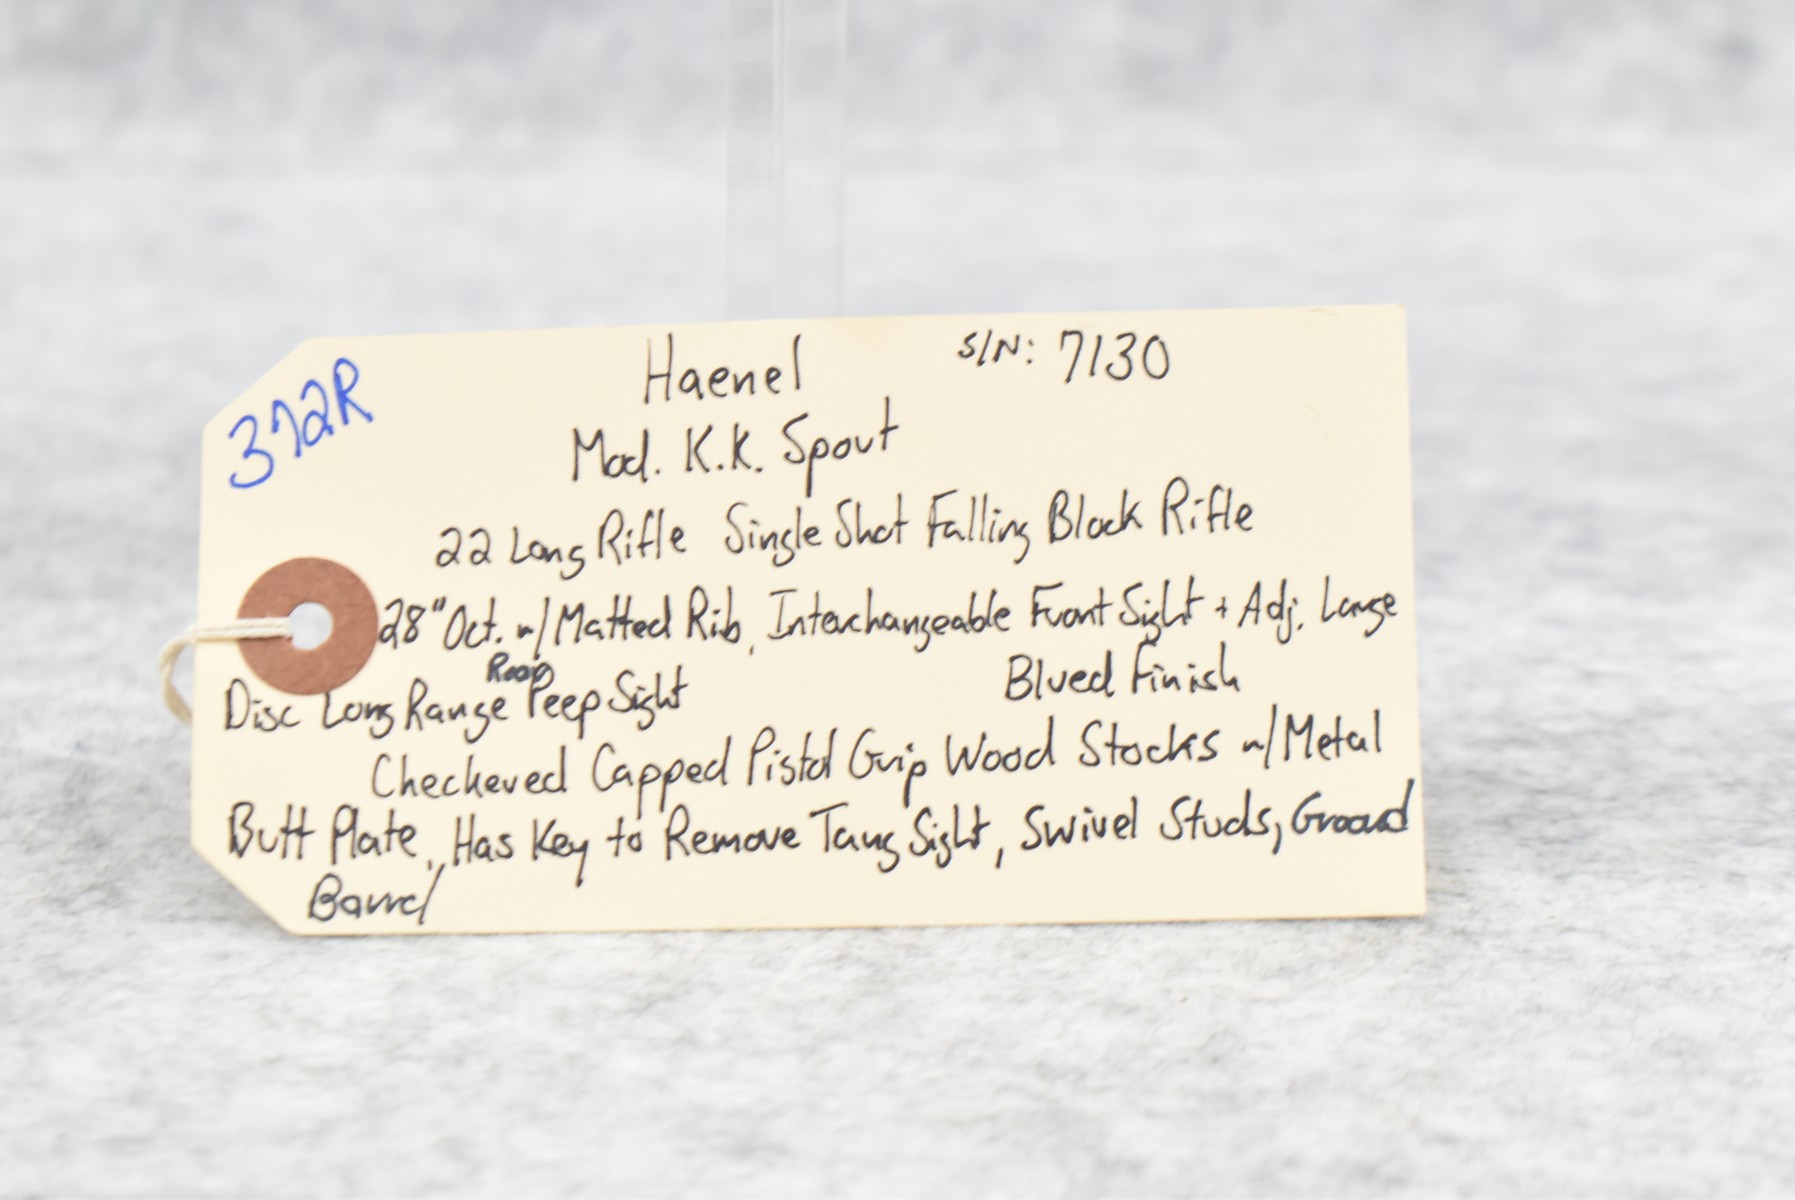 372R
Haenel S/N: 7130
Mod. K.K. Spout
22 Long Rifle Single Shot Falling Block Rifle
28" Oct. w/ Matted Rib, Interchangeable Front Sight + Adj. Large
Rear
Disc Long Range Peep Sight Blued Finish
Checkered Capped Pistol Grip Wood Stocks w/ Metal
Butt Plate, Has Key to Remove Tang Sight, Swivel Studs,
Barrel